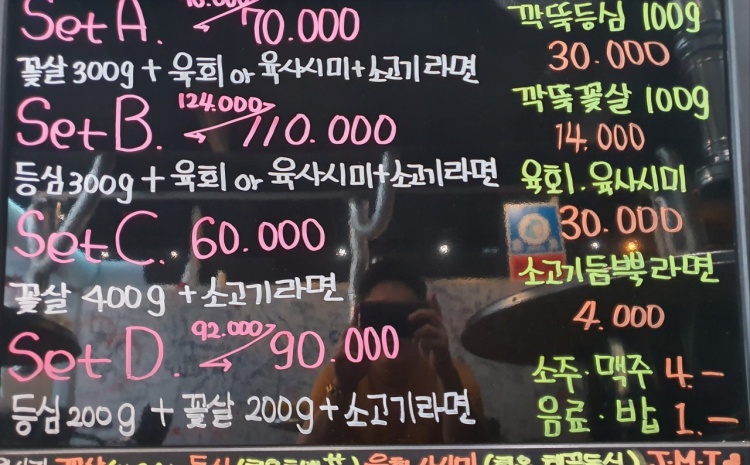 Set A. 70.000
꽃살 300g + 육회 or 육사시미+소고기라면
Set B. 124.000 110.000
등심 300g + 육회 or 육사시미+소고기라면
Set C. 60.000
꽃살 400g + 소고기라면
Set D. 92.000 90.000
등심 200g + 꽃살 200g + 소고기라면
깍뚝등심 100g
30.000
깍뚝꽃살 100g
14.000
육회.육사시미
30.000
소고기듬뿍라면
4.000
소주·맥주 4.-
음료·밥 1.-